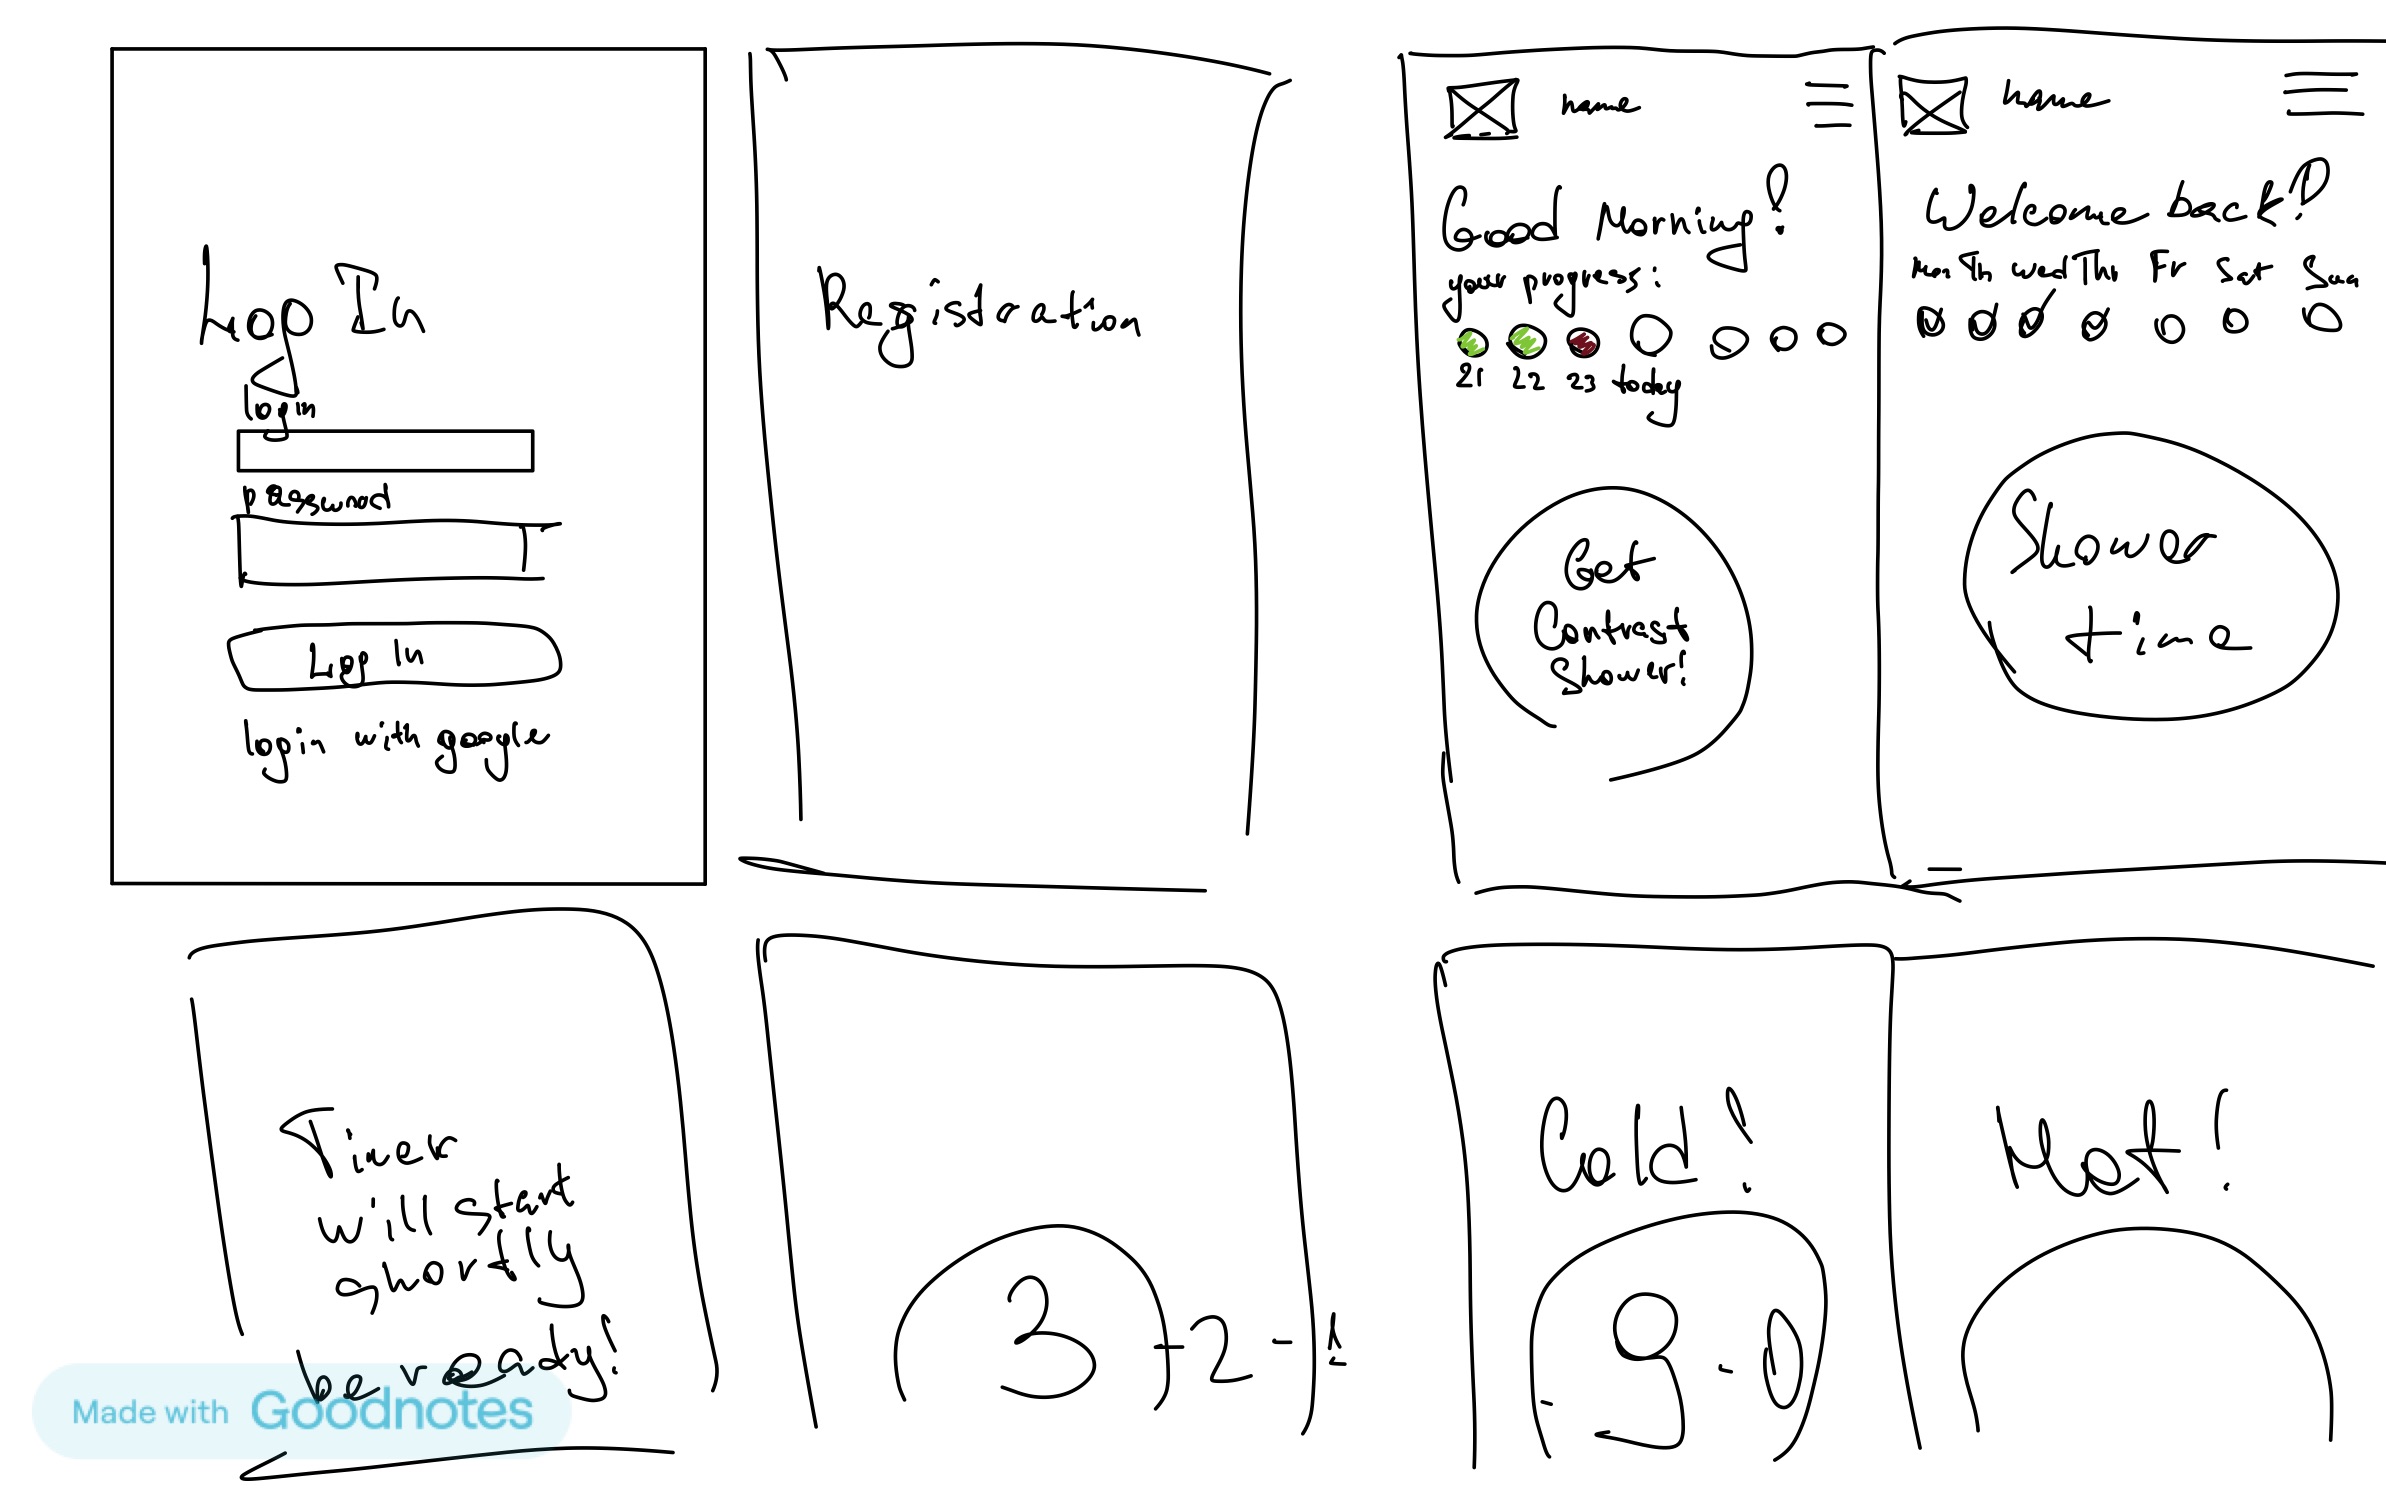 Log In
login
password
Log In
login with google
Registration
name
Good Morning!
your progress:
21 22 23 today
Get
Contrast
Shower!
name
Welcome back!
Mon Th wed Thu Fr Sat Sun
Shower
time
Timer
will start
shortly
be ready!
3 - 2 - 1
Cold!
- 9 - 0
Hot!
Made with Goodnotes